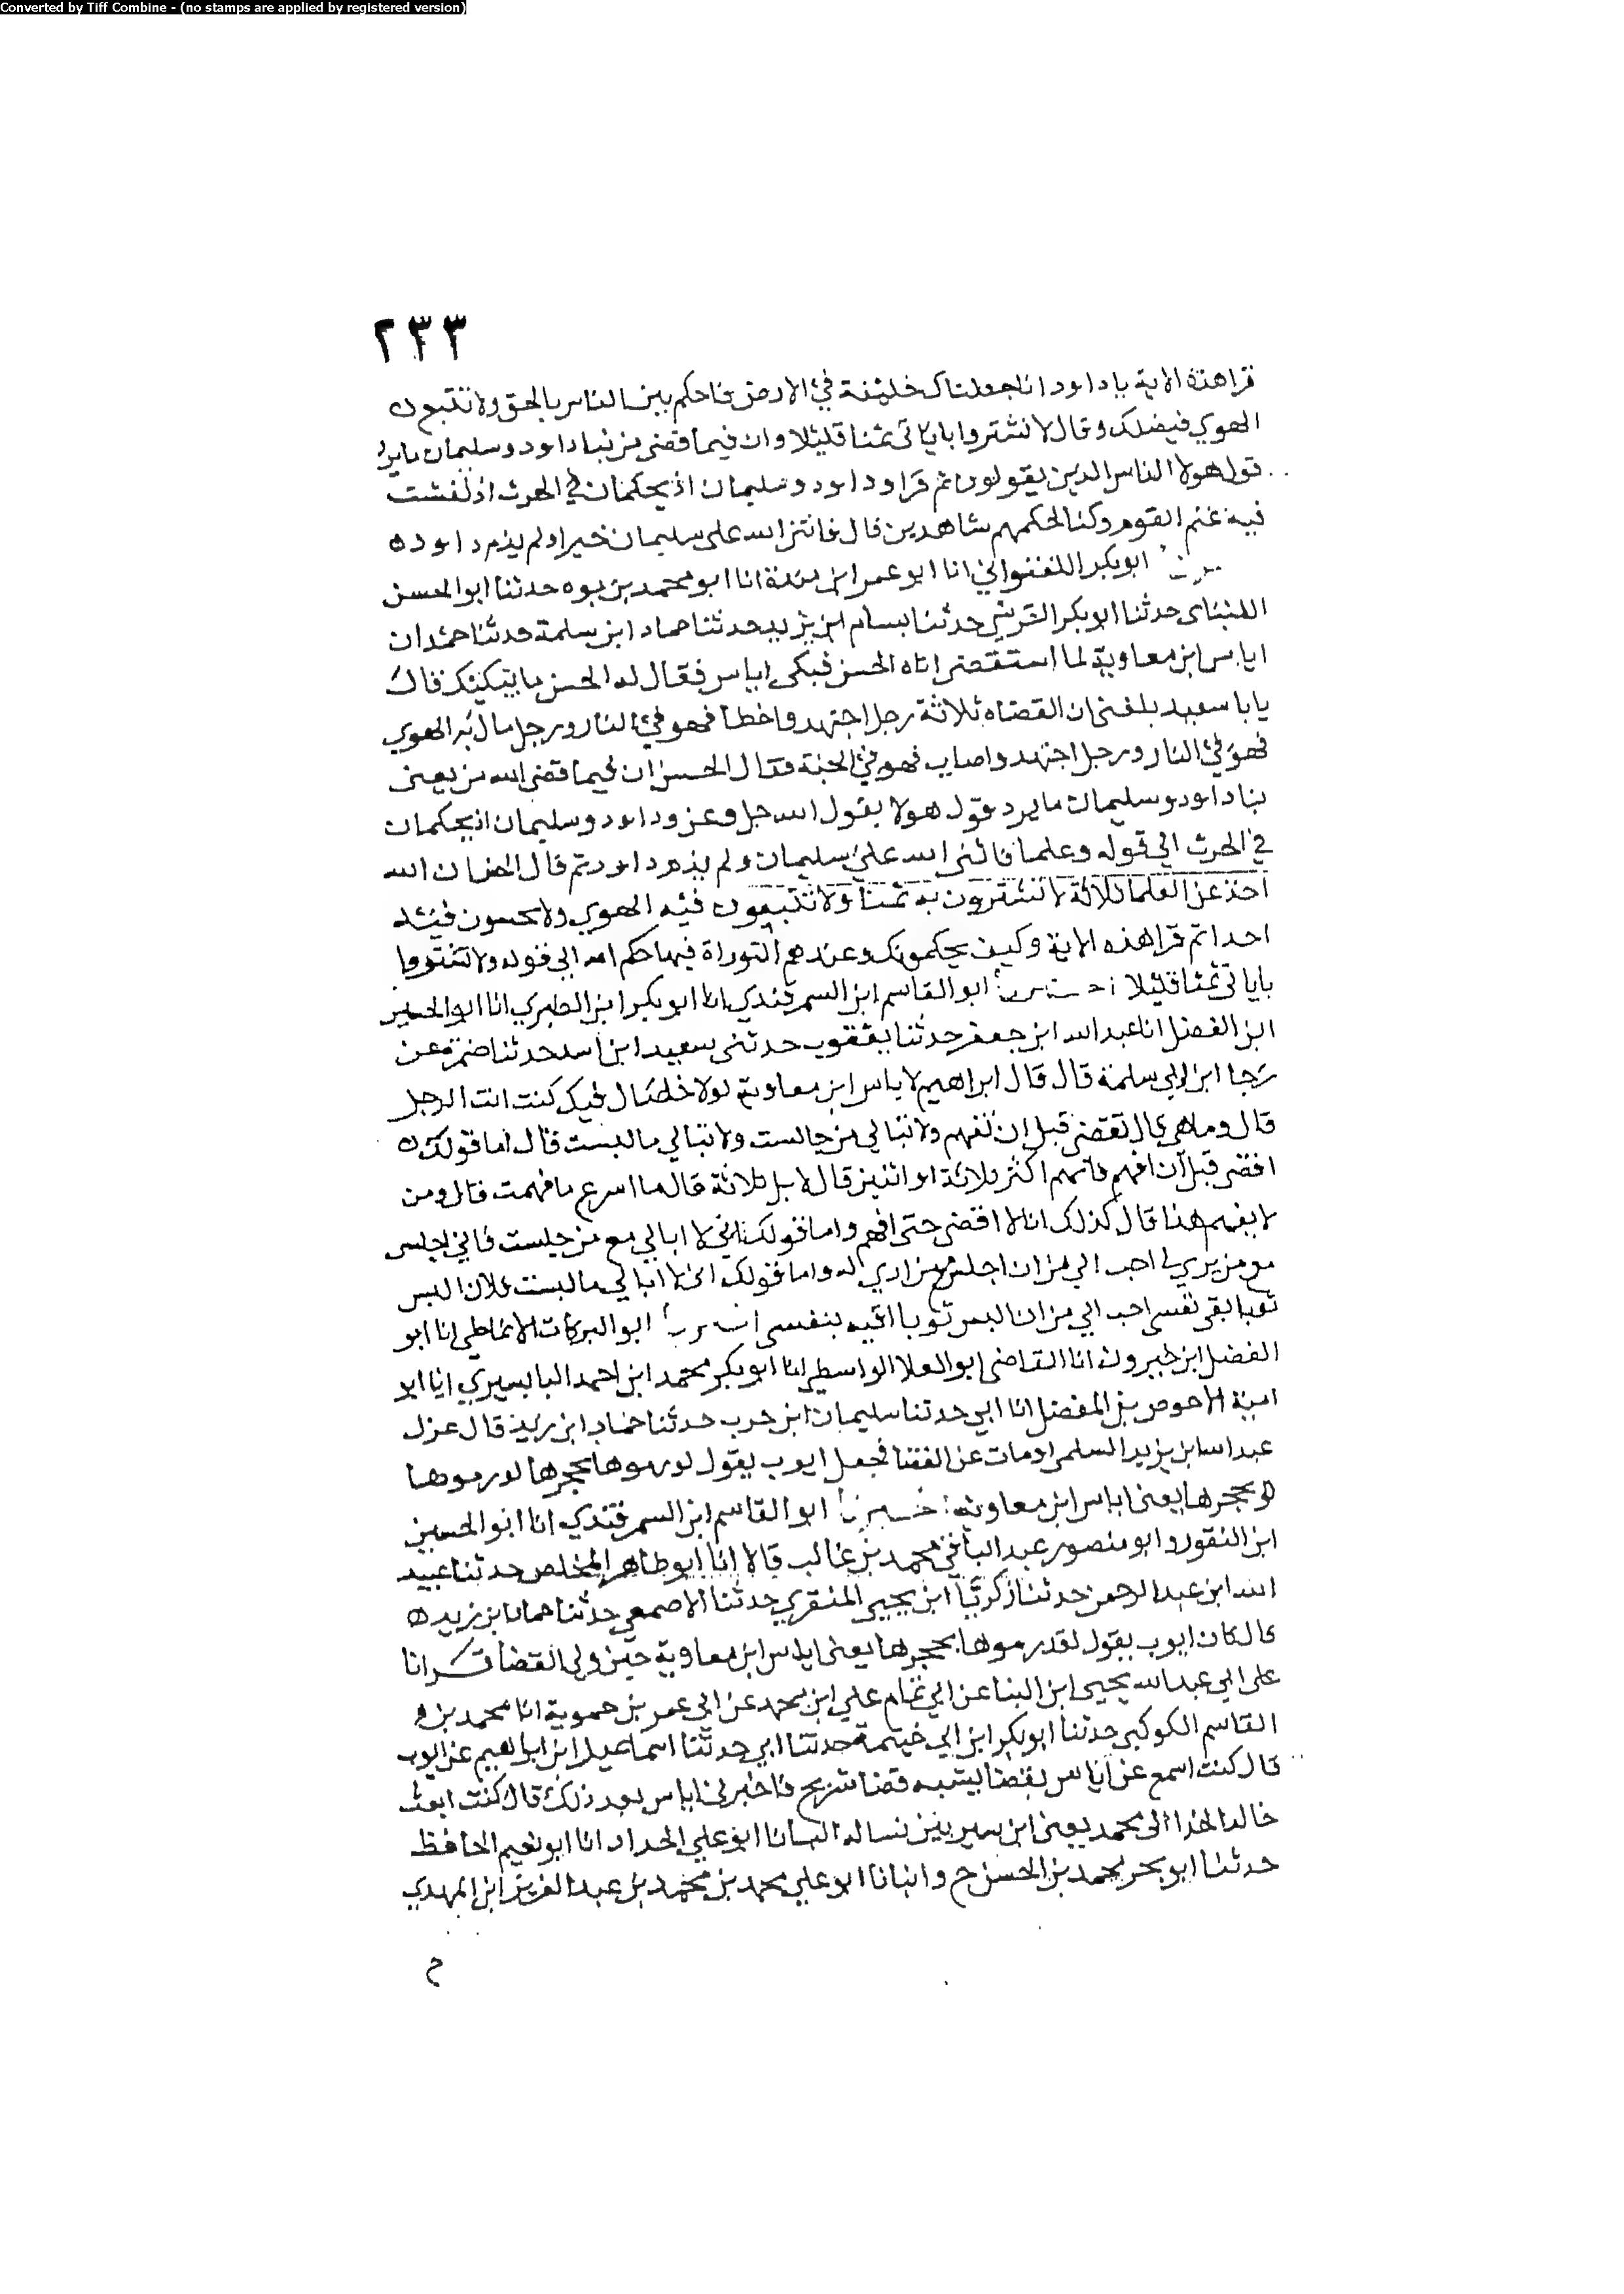 Converted by Tiff Combine - (no stamps are applied by registered version)
٢٣٣
قراهذه الاية ياداود اناجعلناك خليفة في الارض فاحكم بين الناس بالحق ولا تتبعون
الهوي فيضلك وقال لا تشتروا باياتي ثمنا قليلا وان فيما قضى من نبا داود وسليمان مايرد
قول هولا الناس الدين يقولون ثم قرا وداود وسليمان اذ يحكمان في الحرث اذ نفشت
فيه غنم القوم وكنا لحكمهم شاهدين قال فاثنى الله على سليمان خيرا ولم يذم داود ه
ابوبكر اللفتواني انا ابو عمر ابن مندة انا ابو محمد بن يوه حدثنا ابو الحسن
اللنبناى حدثنا ابو بكر القرشي حدثنا بسام ابن يزيد حدثنا حماد ابن سلمة حدثنا حميد ان
اياس ابن معاوية لما استقضى اتاه الحسن فبكى اياس فقال له الحسن ما يبكيك قال
يابا سعيد بلغنى ان القضاه ثلاثة رجل اجتهد فاخطا فهو في النار ورجل مال به الهوي
فهو في النار ورجل اجتهد واصاب فهو في الجنة فقال الحسن ان فيما قضى الله من يعنى
نبا داود وسليمان ما يرد قول هولا يقول الله جل وعز وداود وسليمان اذ يحكمان
في الحرث الي قوله وعلما فاثنى الله علي سليمان ولم يذم داود ثم قال الحسن ان الله
اخذ عن العلما ثلاثة لا تشترون به ثمنا ولا تتبعون فيه الهوي ولا يخشون فيه
احدا ثم قرا هذه الاية وكيف يحكمونك وعندهم التوراة فيها حكم الله الي قوله ولا تشتروا
باياتي ثمنا قليلا ابو القاسم ابن السمرقندي انا ابو بكر ابن الطبري انا ابو الحسين
ابن الفضل انا عبد الله ابن جعفر حدثنا يعقوب حدثنى سعيد ابن اسد حدثنا ضمرة عن
رجا ابن ابي سلمة قال قال ابراهيم لاياس ابن معاوية لولا خصال فيك كنت انت الرجل
قال وما هي قال تقضى قبل ان تفهم ولا تبالي من جالست ولا تبالي ما لبست قال اما قولك
اقضى قبل ان افهم فانهم اكثر ثلاثة او اثنين قال لا بل ثلاثة قال ما اسرع ما فهمت قال ومن
لا يفهم هذا قال كذلك انا لا اقضى حتى افهم واما قولك اني لا ابالي مع من جلست فاني اجلس
مع من يري لي احب الي من ان اجلس مع من اري له واما قولك اني لا ابالي ما لبست فلان البس
ثوبا يقي نفسى احب الي من ان البس ثوبا اقيه بنفسى ابو البركات الانماطي انا ابو
الفضل ابن خيرون انا القاضى ابو العلا الواسطي انا ابو بكر محمد ابن احمد البابسيري انا ابو
امية الاحوص بن المفضل انا ابي حدثنا سليمان ابن حرب حدثنا حماد ابن زيد قال عزل
عبد الله ابن يزيد السلمي او مات عن القضا فجعل ايوب يقول لو رموها بحجرها لو رموها
بحجرها يعنى اياس ابن معاوية ابو القاسم ابن السمرقندي انا ابو الحسين
ابن النقور وابو منصور عبد الباقي محمد بن غالب قالا انا ابو طاهر المخلص حدثنا عبيد
الله ابن عبد الرحمن حدثنا زكريا ابن يحيى المنقري حدثنا الاصمعي حدثنا حماد ابن زيد ه
قال كان ايوب يقول لقد رموها بحجرها يعنى اياس ابن معاوية حين ولي القضا قرانا
على ابي عبد الله يحيى ابن البنا عن ابي تمام علي ابن محمد عن ابي عمر بن حموية انا محمد بن
القاسم الكوكبي حدثنا ابو بكر ابن ابي خيثمة حدثنا ابي حدثنا اسماعيل ابن ابراهيم عن ايوب
قال كنت اسمع عن اياس بقضا يشبه قضا شريح فاخبرني اياس بعد ذلك قال كنت ابعث
خالدا الحذا الى محمد يعنى ابن سيرين نساله انبانا ابو علي الحداد انا ابو نعيم الحافظ
حدثنا ابو بحر محمد بن الحسن ح وانبانا ابو علي محمد بن محمد بن عبد العزيز ابن المهدي